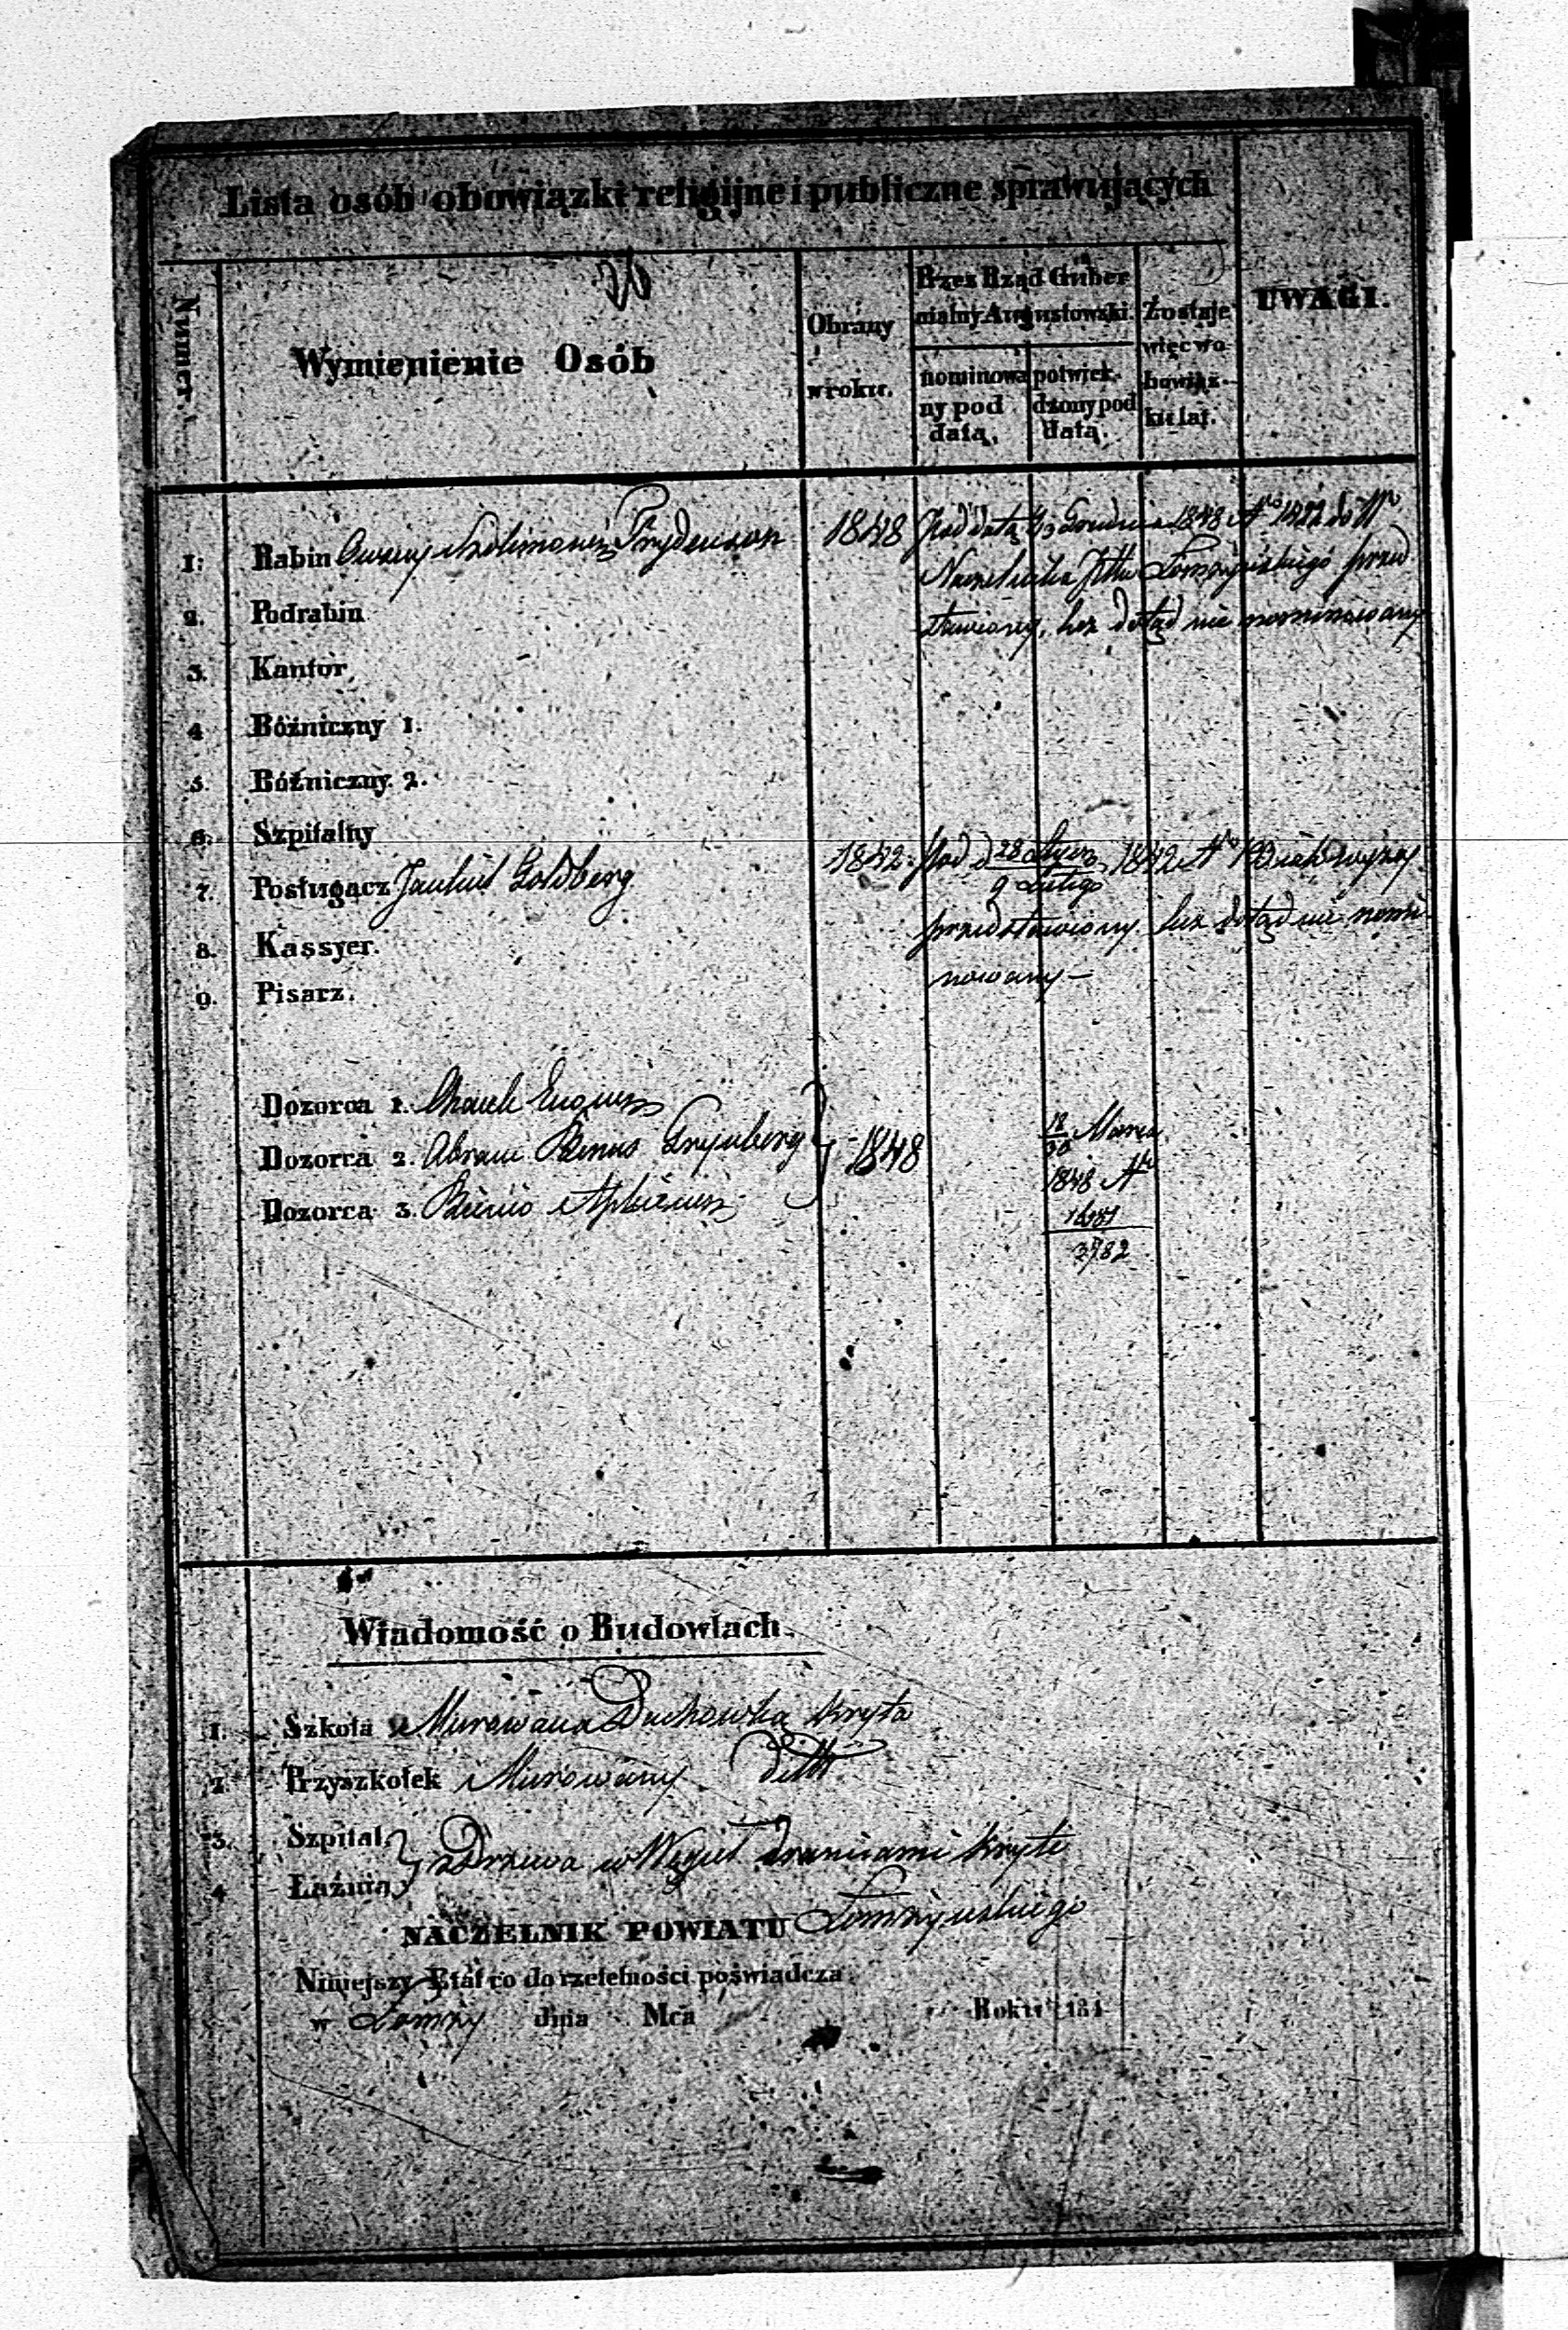 Lista osób obowiązki religijne i publiczne sprawujących
Numer.
Wymienienie Osób
Obrany w roku.
Przez Rząd Gubernialny Augustowski.
nominowany pod datą.
potwierdzony pod datą.
Zostaje więc w obowiązku lat.
UWAGI.
1. Rabin Szolimowicz Frydenson 1848 Pod datą Grudnia 1848 No 1822 do
Naczelnika Pttu Łomżyńskiego przed
2. Podrabin
stawiony, lecz dotąd nie nominowany
3. Kantor
4 Bóżniczny 1.
5. Bóżniczny 2.
6. Szpitalny
7. Posługacz Jankiel Goldberg 1842. Pod d 28 Stycz 1842 No jak wyżej
9 Lutego
8. Kassyer.
przedstawiony lecz dotąd nie nomi
9. Pisarz.
nowany –
Dozorca 1.
Dozorca 2. Abram Grynberg } 1848
18/30 Marca
1848 No
Dozorca 3.
3782
Wiadomość o Budowlach.
1. Szkoła Murowana Dachówką kryta
2 Przyszkołek Murowany ditto
3. Szpital } z Drzewa w Węgieł dranicami kryte
4 Łaźnia
NACZELNIK POWIATU Łomżyńskiego
Niniejszy Etat co do rzetelności poświadcza
w Łomży dnia Mca Roku 184